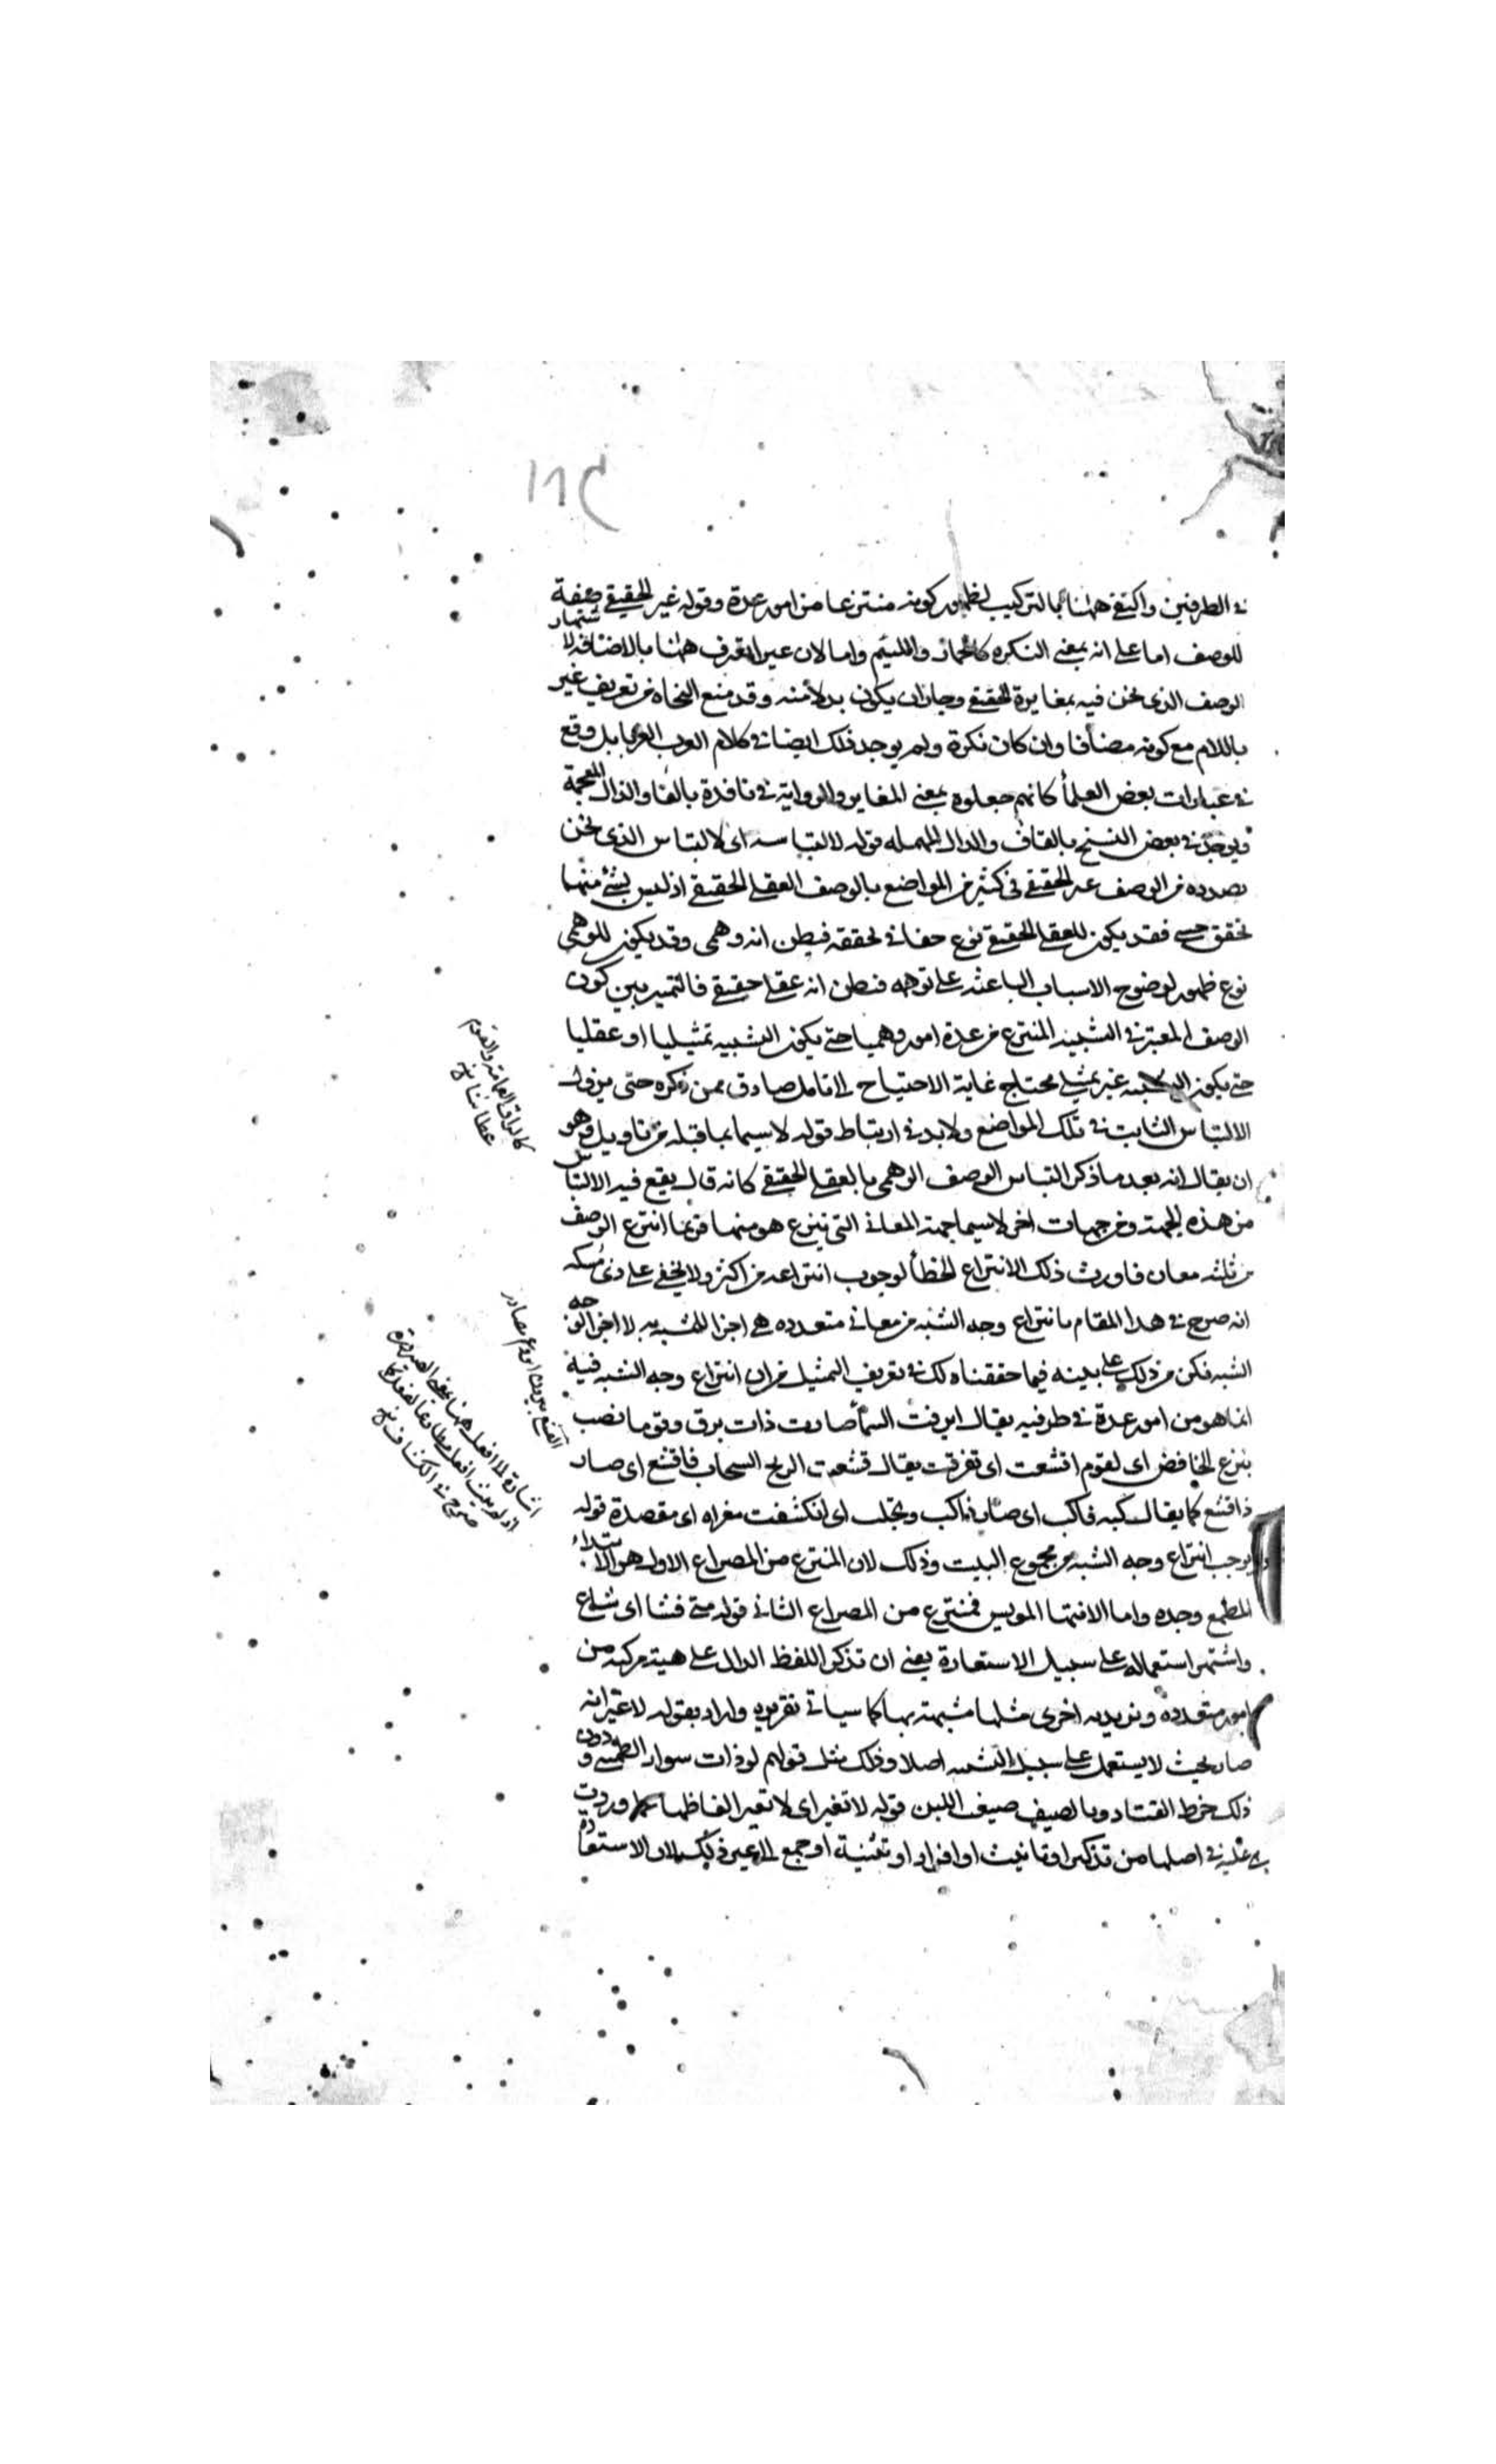 في الطرفين واكتفى ههنا بالتركيب لظهور كونه منتزعا من امور عدة وقوله غير الحقيقي صفة
للوصف اما على انه بمعنى النكره كالحمار واللئيم واما لان غير المعرف ههنا بالاضافة لاشتهار
الوصف الذى نحن فيه بمغايرة الحقيقي وجاز ان يكون بدلا منه وقد منع النحاة من تعريف غير
باللام مع كونه مضافا وان كان نكرة ولم يوجد ذلك ايضا في كلام العرب بل وقع
في عبارات بعض العلمأ كانهم جعلوه بمعنى المغاير والرواية في نافدة بالفا والذال المعجمة
ويوجد في بعض النسخ بالقاف والدال المهمله قوله لالتباسه اى لالتباس الذى نحن
بصدده من الوصف غير الحقيقي في كثير من المواضع بالوصف العقلي الحقيقي اذ ليس لشئ منهما
تحقق حسي فقد يكون للعقلي الحقيقي نوع خفا في تحققه فيظن انه وهمى وقد يكون للوهمى
نوع ظهور لوضوح الاسباب الباعثه على توهمه فيظن انه عقلي حقيقي فالتمييز بين كون
الوصف المعتبر في التشبيه المنتزع من عدة امور وهميا حتى يكون التشبيه تمثيليا او عقليا
حتى يكون التشبيه غير تمثيلي محتاج غاية الاحتياج الى تامل صادق ممن ذكره حتى يزول
الالتباس الثابت في تلك المواضع ولابد في ارتباط قوله لاسيما بما قبله من تاويل وهو
ان يقال انه بعد ما ذكر التباس الوصف الوهمى بالعقلي الحقيقي كانه قال يقع فيه الالتباس
من هذه الجهة ومن جهات اخر لاسيما جهة المعاني التى ينتزع هو منها فربما انتزع الوصف
من ثلثه معان فاورث ذلك الانتزاع الخطأ لوجوب انتزاعه من اكثر ولا يخفى على ذى مسكه
انه صرح في هذا المقام بانتزاع وجه الشبه من معاني متعدده هي اجزا للمشبه به لا اجزا لوجه
الشبه فكن من ذلك على بينه فيما حققناه لك في تعريف التمثيل من ان انتزاع وجه الشبه فيه
انما هو من امور عدة في طرفيه يقال ابرقت السمأ صارت ذات برق وقوما نصب
بنزع الخافض اى لقوم اقشعت اى تفرقت يقال قشعت الريح السحاب فاقشع اى صار
ذا قشع كما يقال كبه فاكب اى صار ذا كب وتجلت اى انكشفت مغزاه اى مقصدة قوله
يوجب انتزاع وجه الشبه من مجموع البيت وذلك لان المنتزع من المصراع الاول هو الابتداء
المطمع وحده واما الانتها المويس فمنتزع من المصراع الثاني قوله متى فشا اى شاع
واشتهر استعماله على سبيل الاستعارة يعني ان تذكر اللفظ الدال على هيئة مركبه من
امور متعدده وتريد به اخرى مثلها مشبهة بها كما سياتي تقريره واراد بقوله لا غير انه
صار بحيث لا يستعمل على سبيل التشبيه اصلا وذلك مثل قولهم لو ذات سوار لطمتنى ودون
ذلك خرط القتاد وبالصيف ضيعت اللبن قوله لا تغير اى لا تغير الفاظها عما وردت
عليه في اصلها من تذكير او تانيث او افراد او تثنية او جمع الى غير ذلك لان الاستعارة
كما يراق العمامة والقوم
عطاشا
القشع
اشارة الى ان افعل ههنا بمعنى الصيرورة
صرح في الكشاف